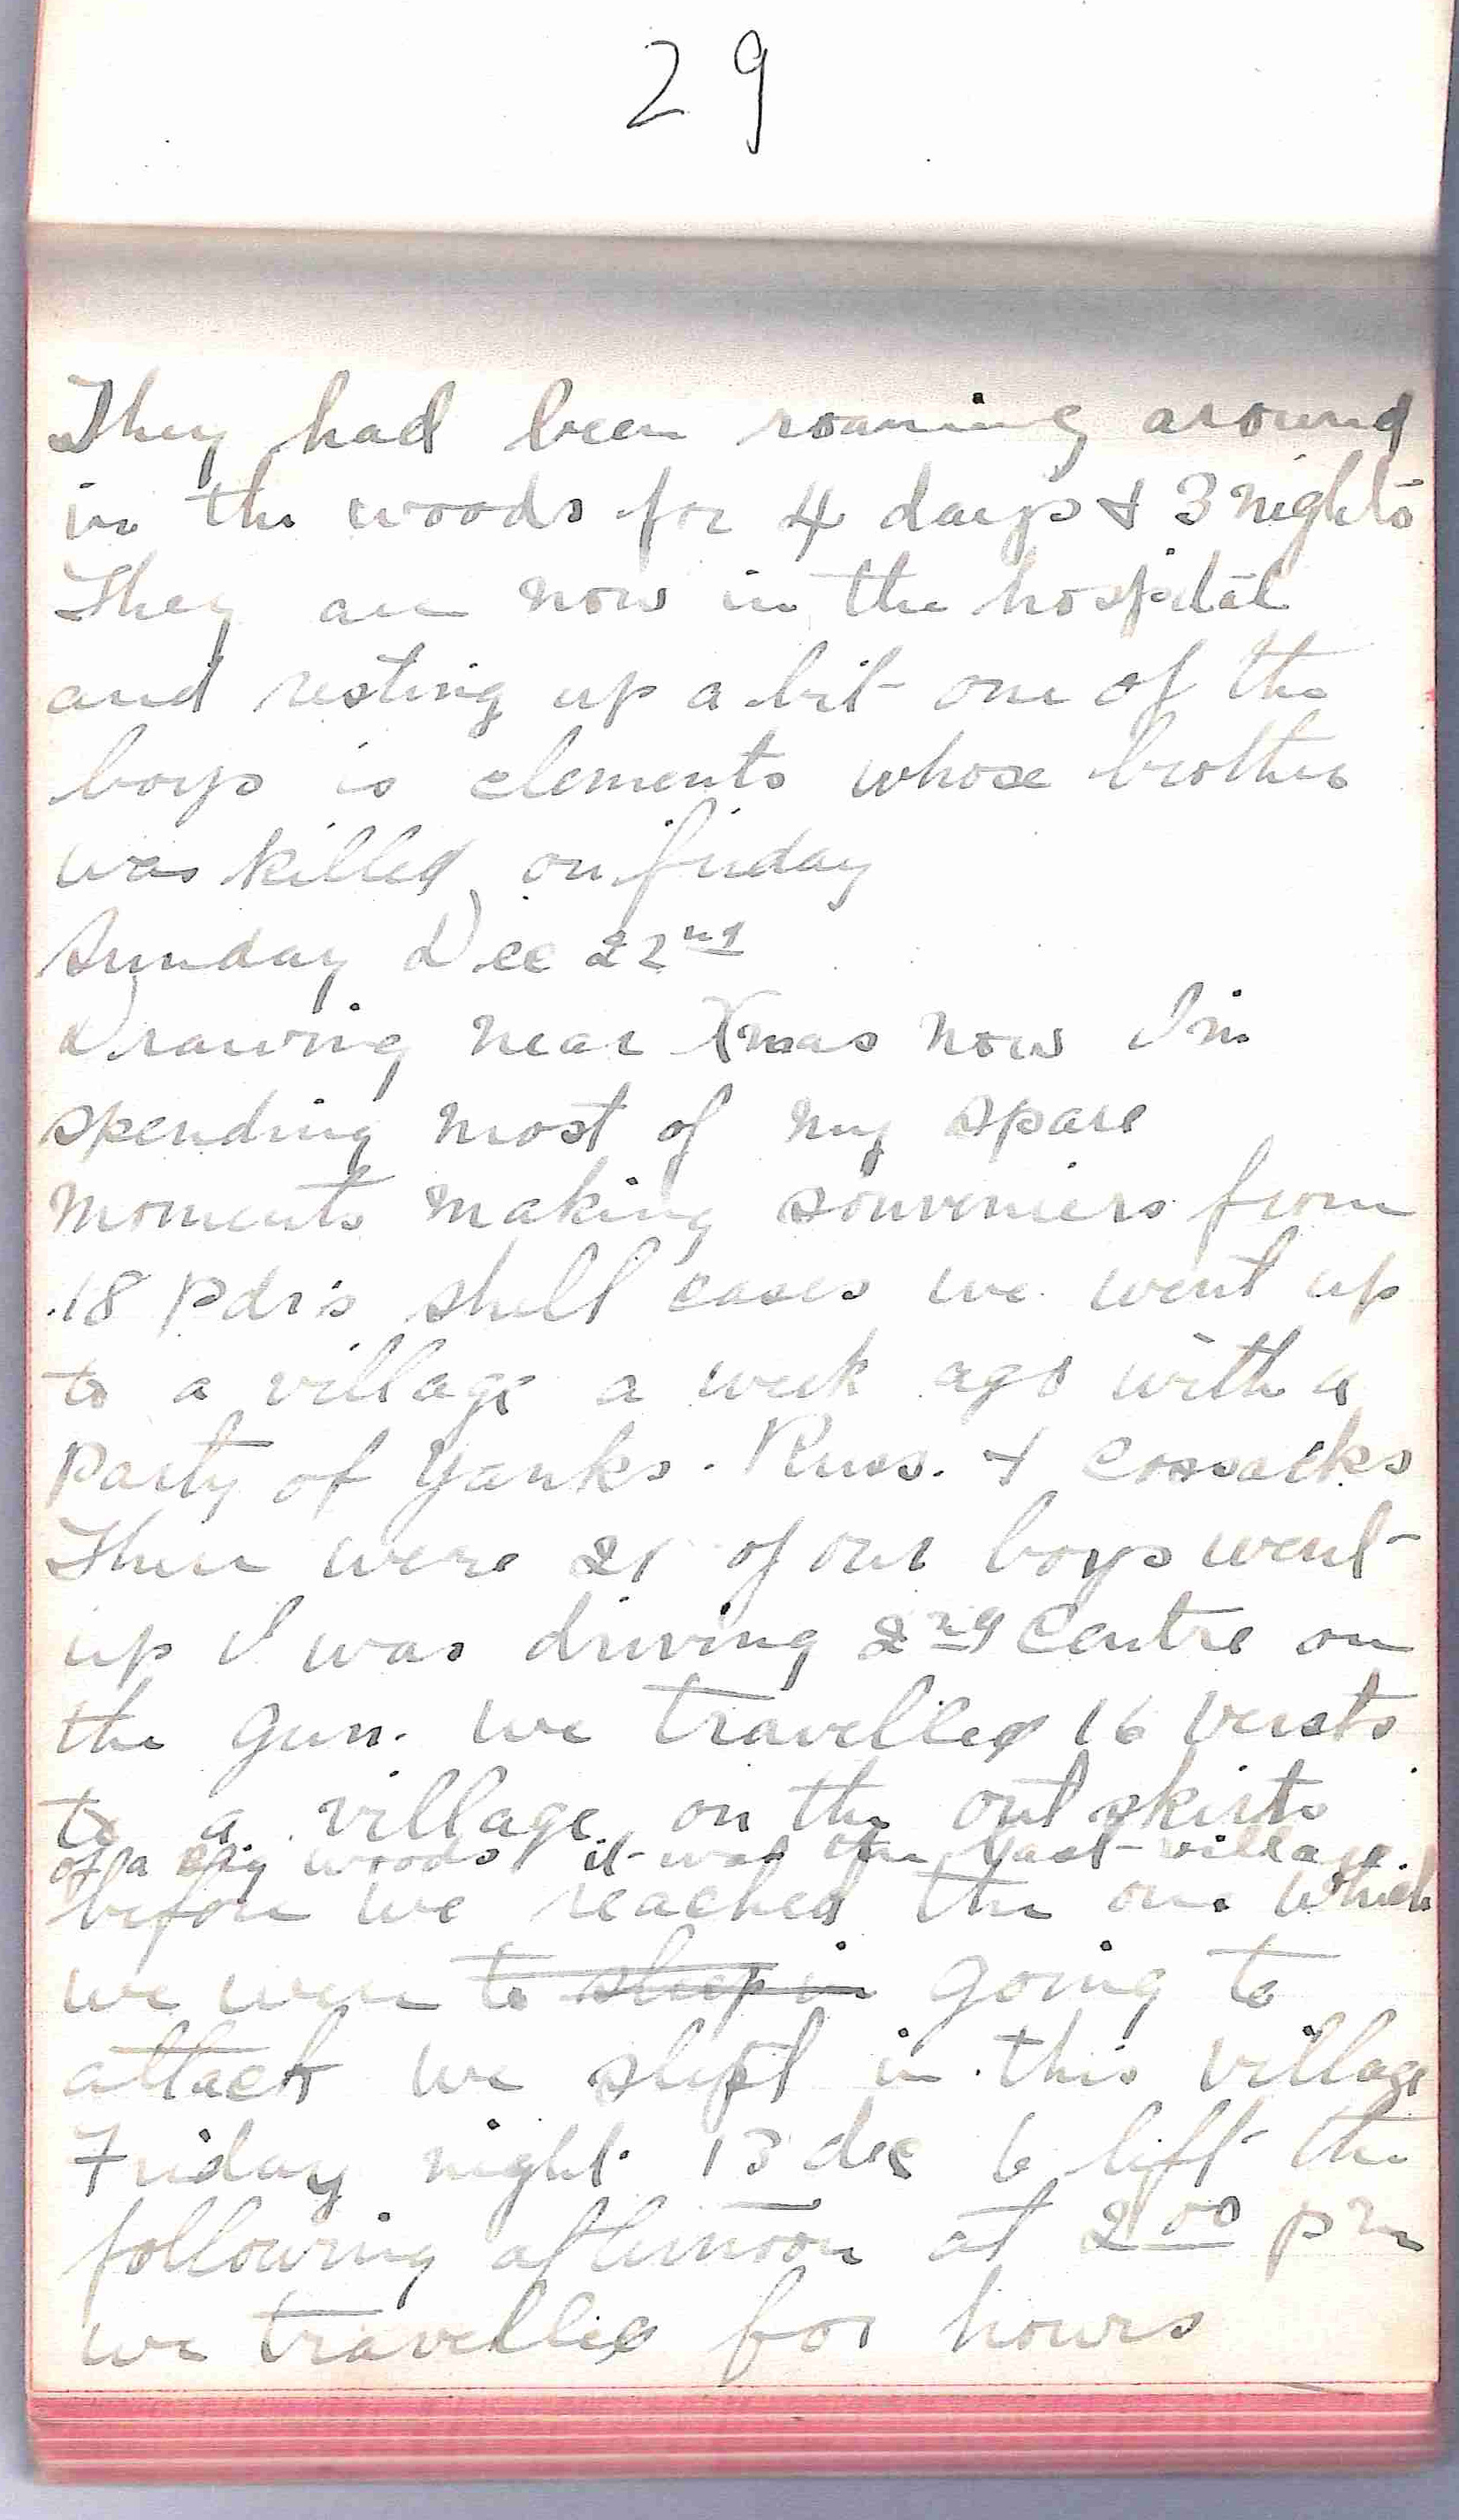 29
They had been roaming around
in the woods for 4 days & 3 nights
They are now in the hospital
and resting up a bit one of the
boys is clements whose brother
was killed on friday
Sunday Dec 22nd
Drawing near Xmas now I'm
spending most of my spare
moments making souveniers from
18 pdr's shell cases we went up
to a village a week ago with a
party of Yanks. Russ. & Cossacks
There were 21 of our boys went
up I was driving 2nd Centre on
the gun. we travelled 16 versts
to a village on the out skirts
of a big woods it was the last village
before we reached the one which
we were to sleep in going to
attack we slept in this village
Friday night 13 dec & left the
following afternoon at 2 00 pm
we travelled for hours